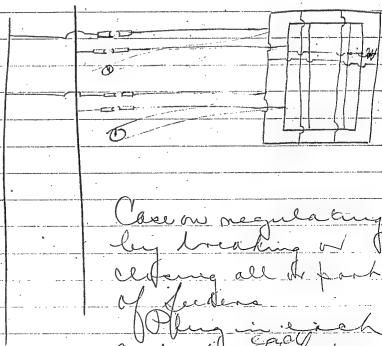 Case on regulating
by breaking or
closing all or part
of feeders
Plug in each